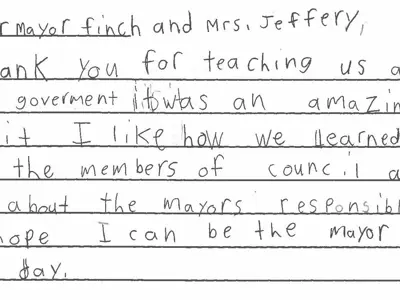 r mayor finch and Mrs. Jeffery,
ank you for teaching us a
goverment it was an amazin
it I like how we learned
the members of council a
about the mayors responsibl
hope I can be the mayor
day.